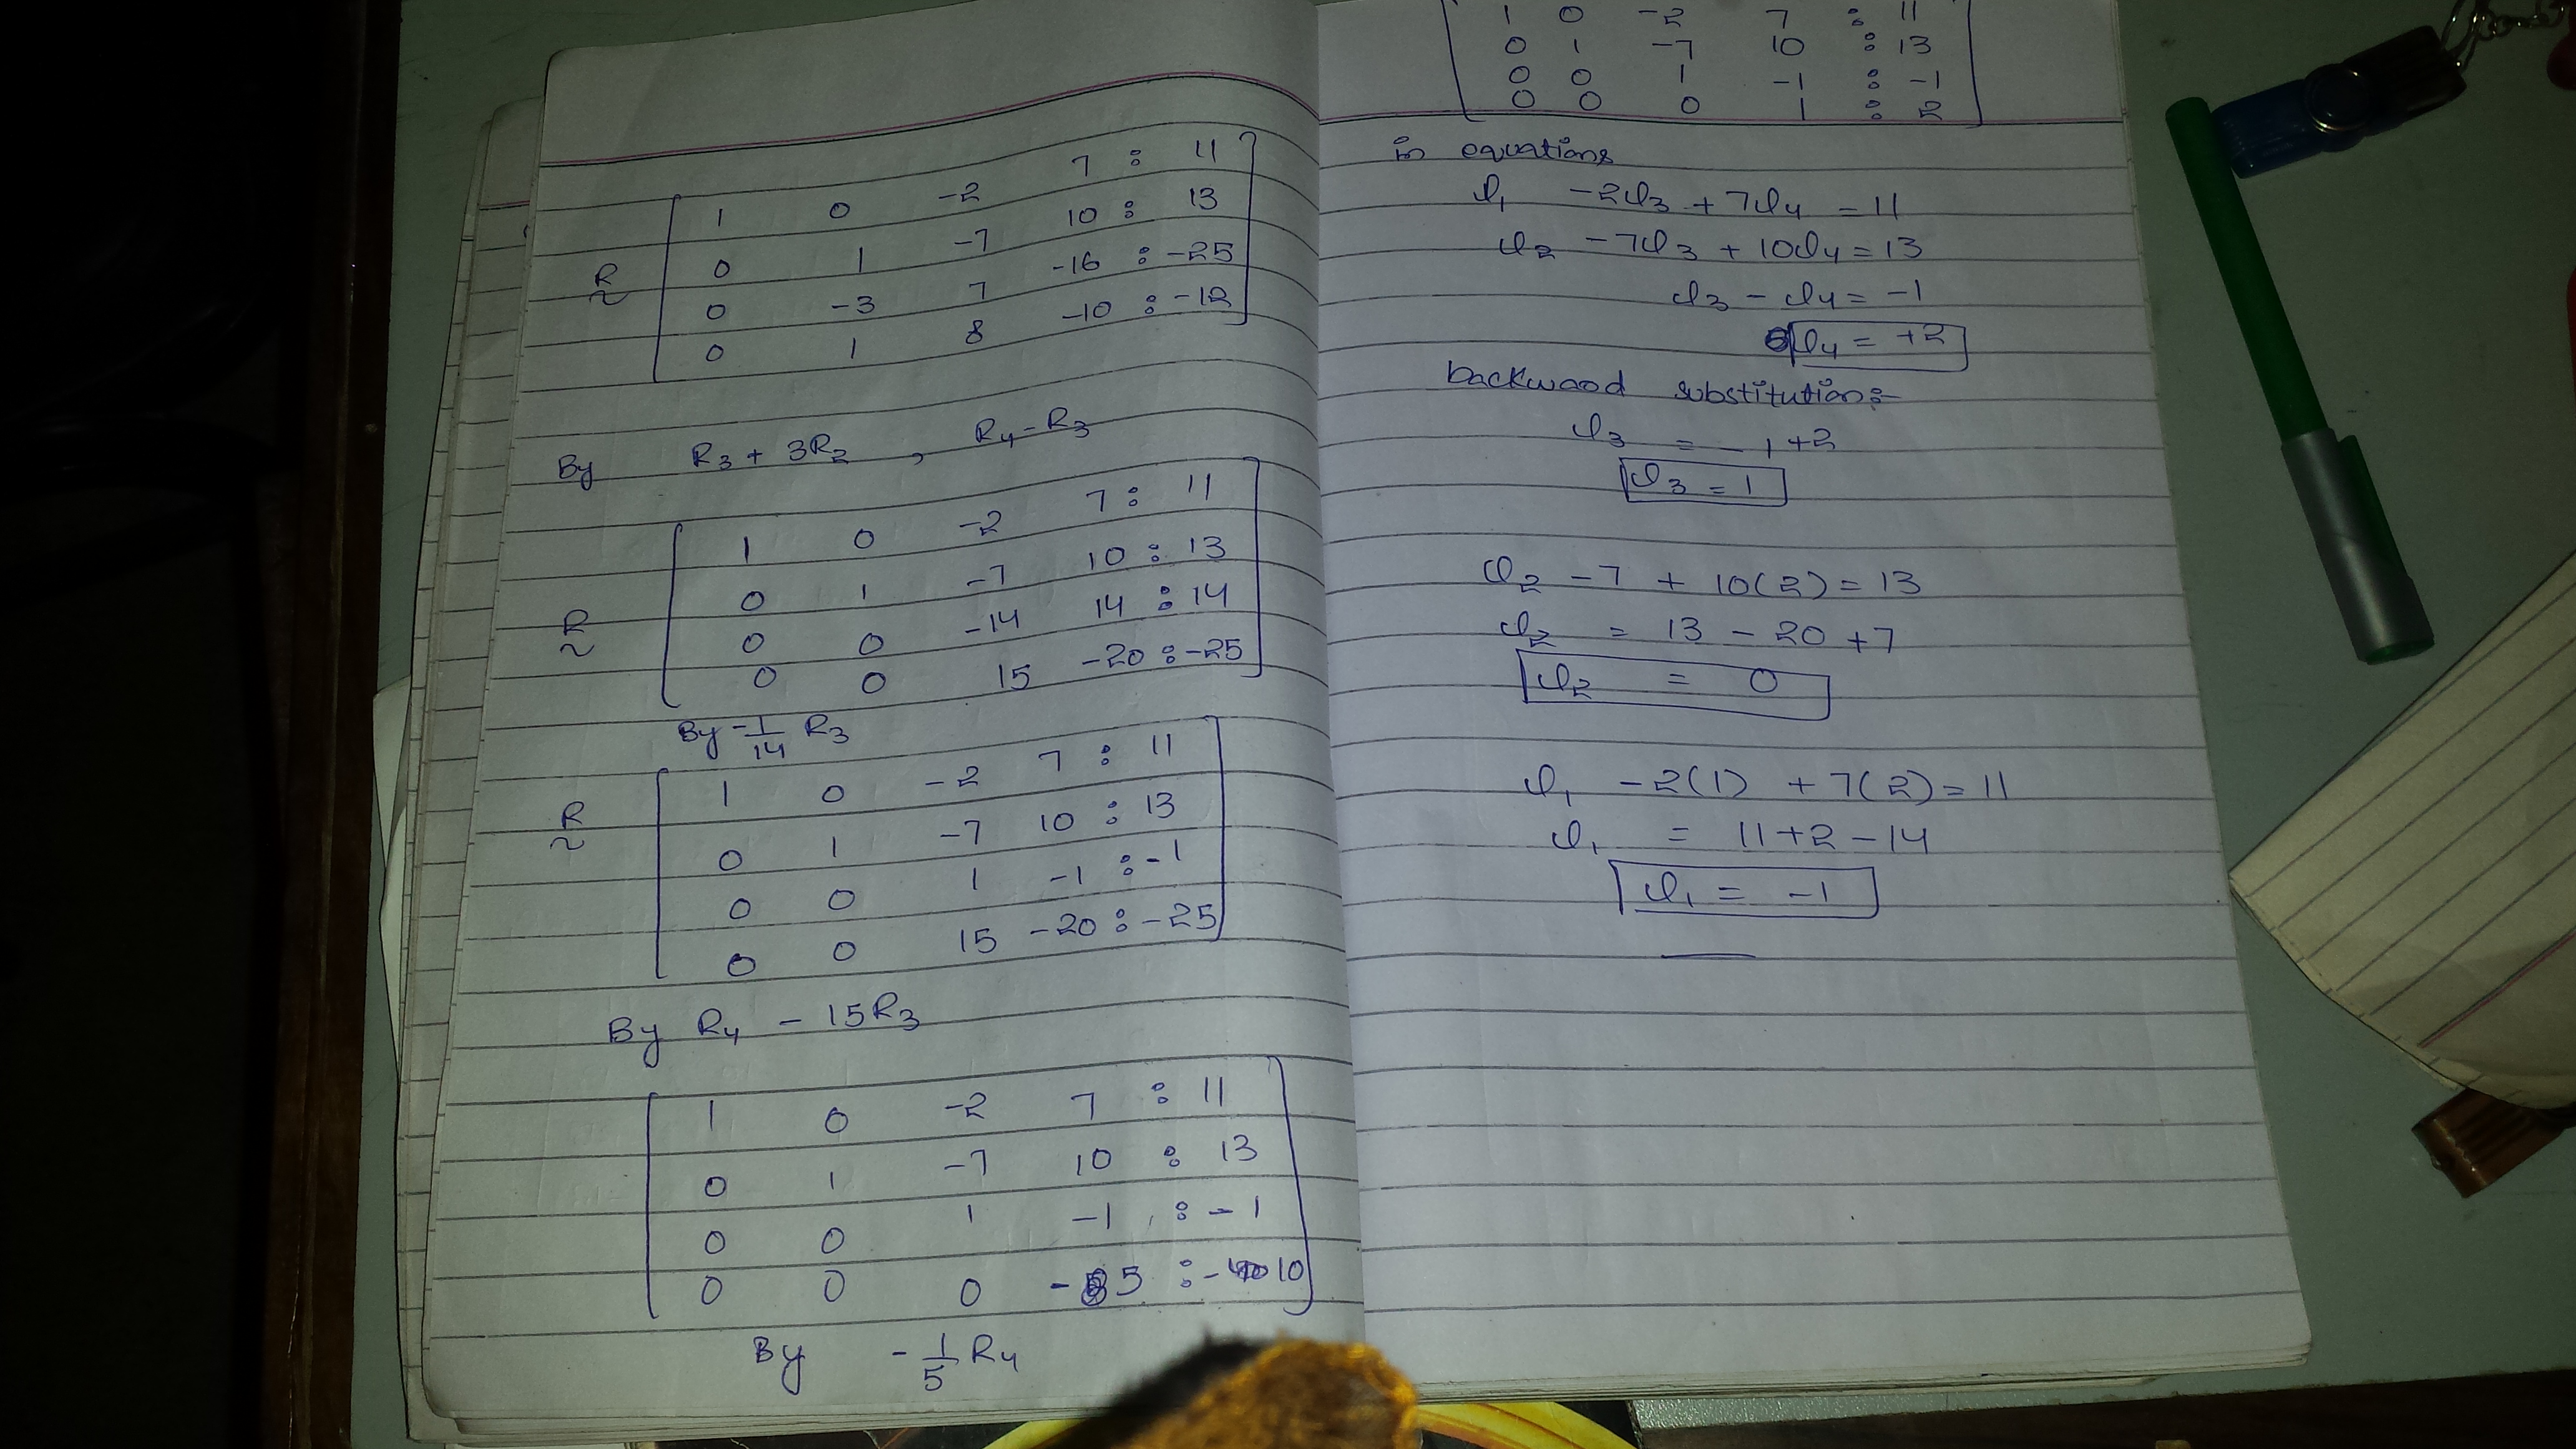 1 0 -2 7 : 11
R 0 1 -7 10 : 13
~ 0 -3 7 -16 : -25
0 1 8 -10 : -12
By R3 + 3R2 , R4 - R3
1 0 -2 7 : 11
R 0 1 -7 10 : 13
~ 0 0 -14 14 : 14
0 0 15 -20 : -25
By -1/14 R3
1 0 -2 7 : 11
R 0 1 -7 10 : 13
~ 0 0 1 -1 : -1
0 0 15 -20 : -25
By R4 - 15R3
1 0 -2 7 : 11
0 1 -7 10 : 13
0 0 1 -1 : -1
0 0 0 -5 : -10
By -1/5 R4
1 0 -2 7 : 11
0 1 -7 10 : 13
0 0 1 -1 : -1
0 0 0 1 : 2
in equations
x1 -2x3 + 7x4 = 11
x2 -7x3 + 10x4 = 13
x3 - x4 = -1
x4 = +2
backward substitution:-
x3 = -1+2
x3 = 1
x2 -7 + 10(2) = 13
x2 = 13 - 20 +7
x2 = 0
x1 -2(1) + 7(2) = 11
x1 = 11+2-14
x1 = -1